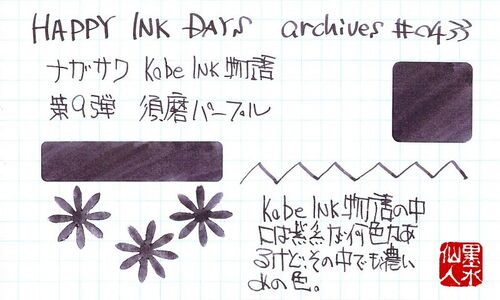 HAPPY INK DAYS archives #0433
ナガサワ Kobe INK物語
第9弾 須磨パープル
Kobe INK物語の中
には紫系な何色かあ
るけど、その中でも濃い
めの色。